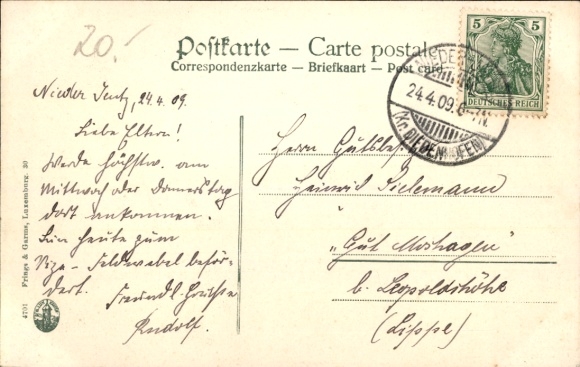 20.-
Postkarte — Carte postale
Correspondenzkarte — Briefkaart — Post card
5 5
DEUTSCHES REICH
NIEDER
24.4.09. 6-7N.
(Kr. DIEDENHOFEN)
Nieder Jeutz, 24.4.09.
Liebe Eltern!
Werde höchstw. am
Mittwoch oder Donnerstag
dort ankommen.
Bin heute zum
Vize-Feldwebel beför-
dert.
Freundl. Grüsse
Rudolf.
Herrn Gutsbes.
Heinrich Sielemann
"Gut Moshagen"
b. Leopoldshöhe
(Lippe)
4701 Frings & Garms, Luxemburg. 30